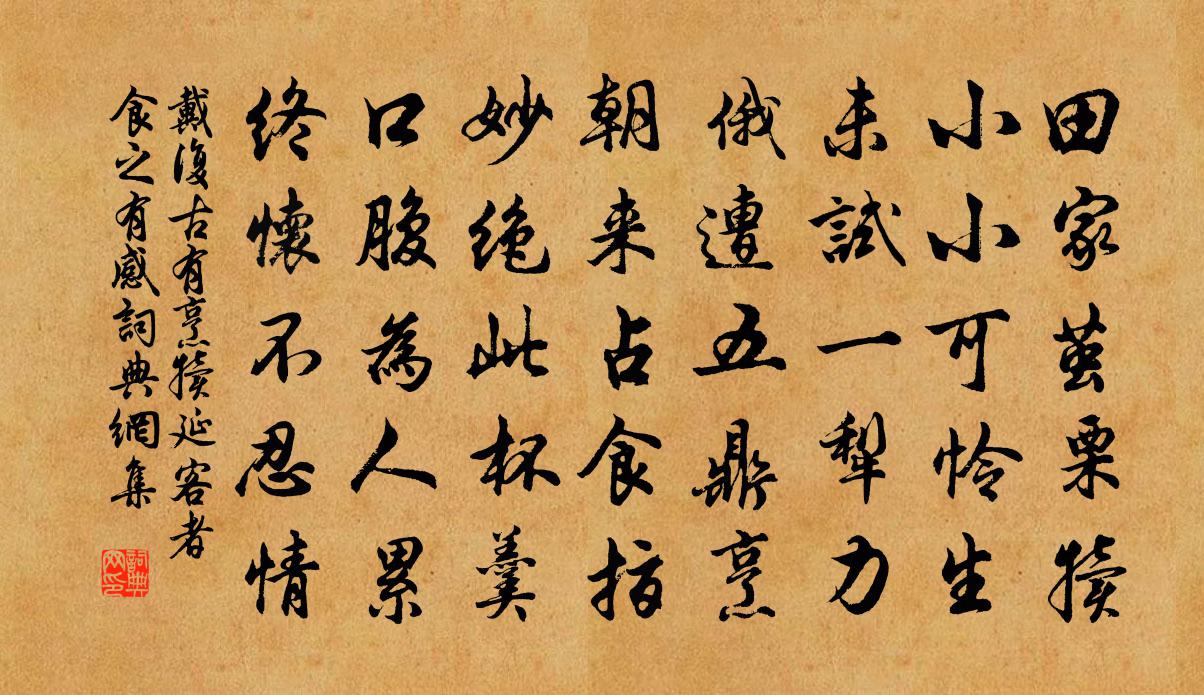 田家茧栗犊
小小可怜生
未試一犁力
俄遭五鼎烹
朝来占食指
妙绝此杯羹
口腹為人累
终懷不忍情
戴復古有烹犊延客者
食之有感詞典網集
詞典网印